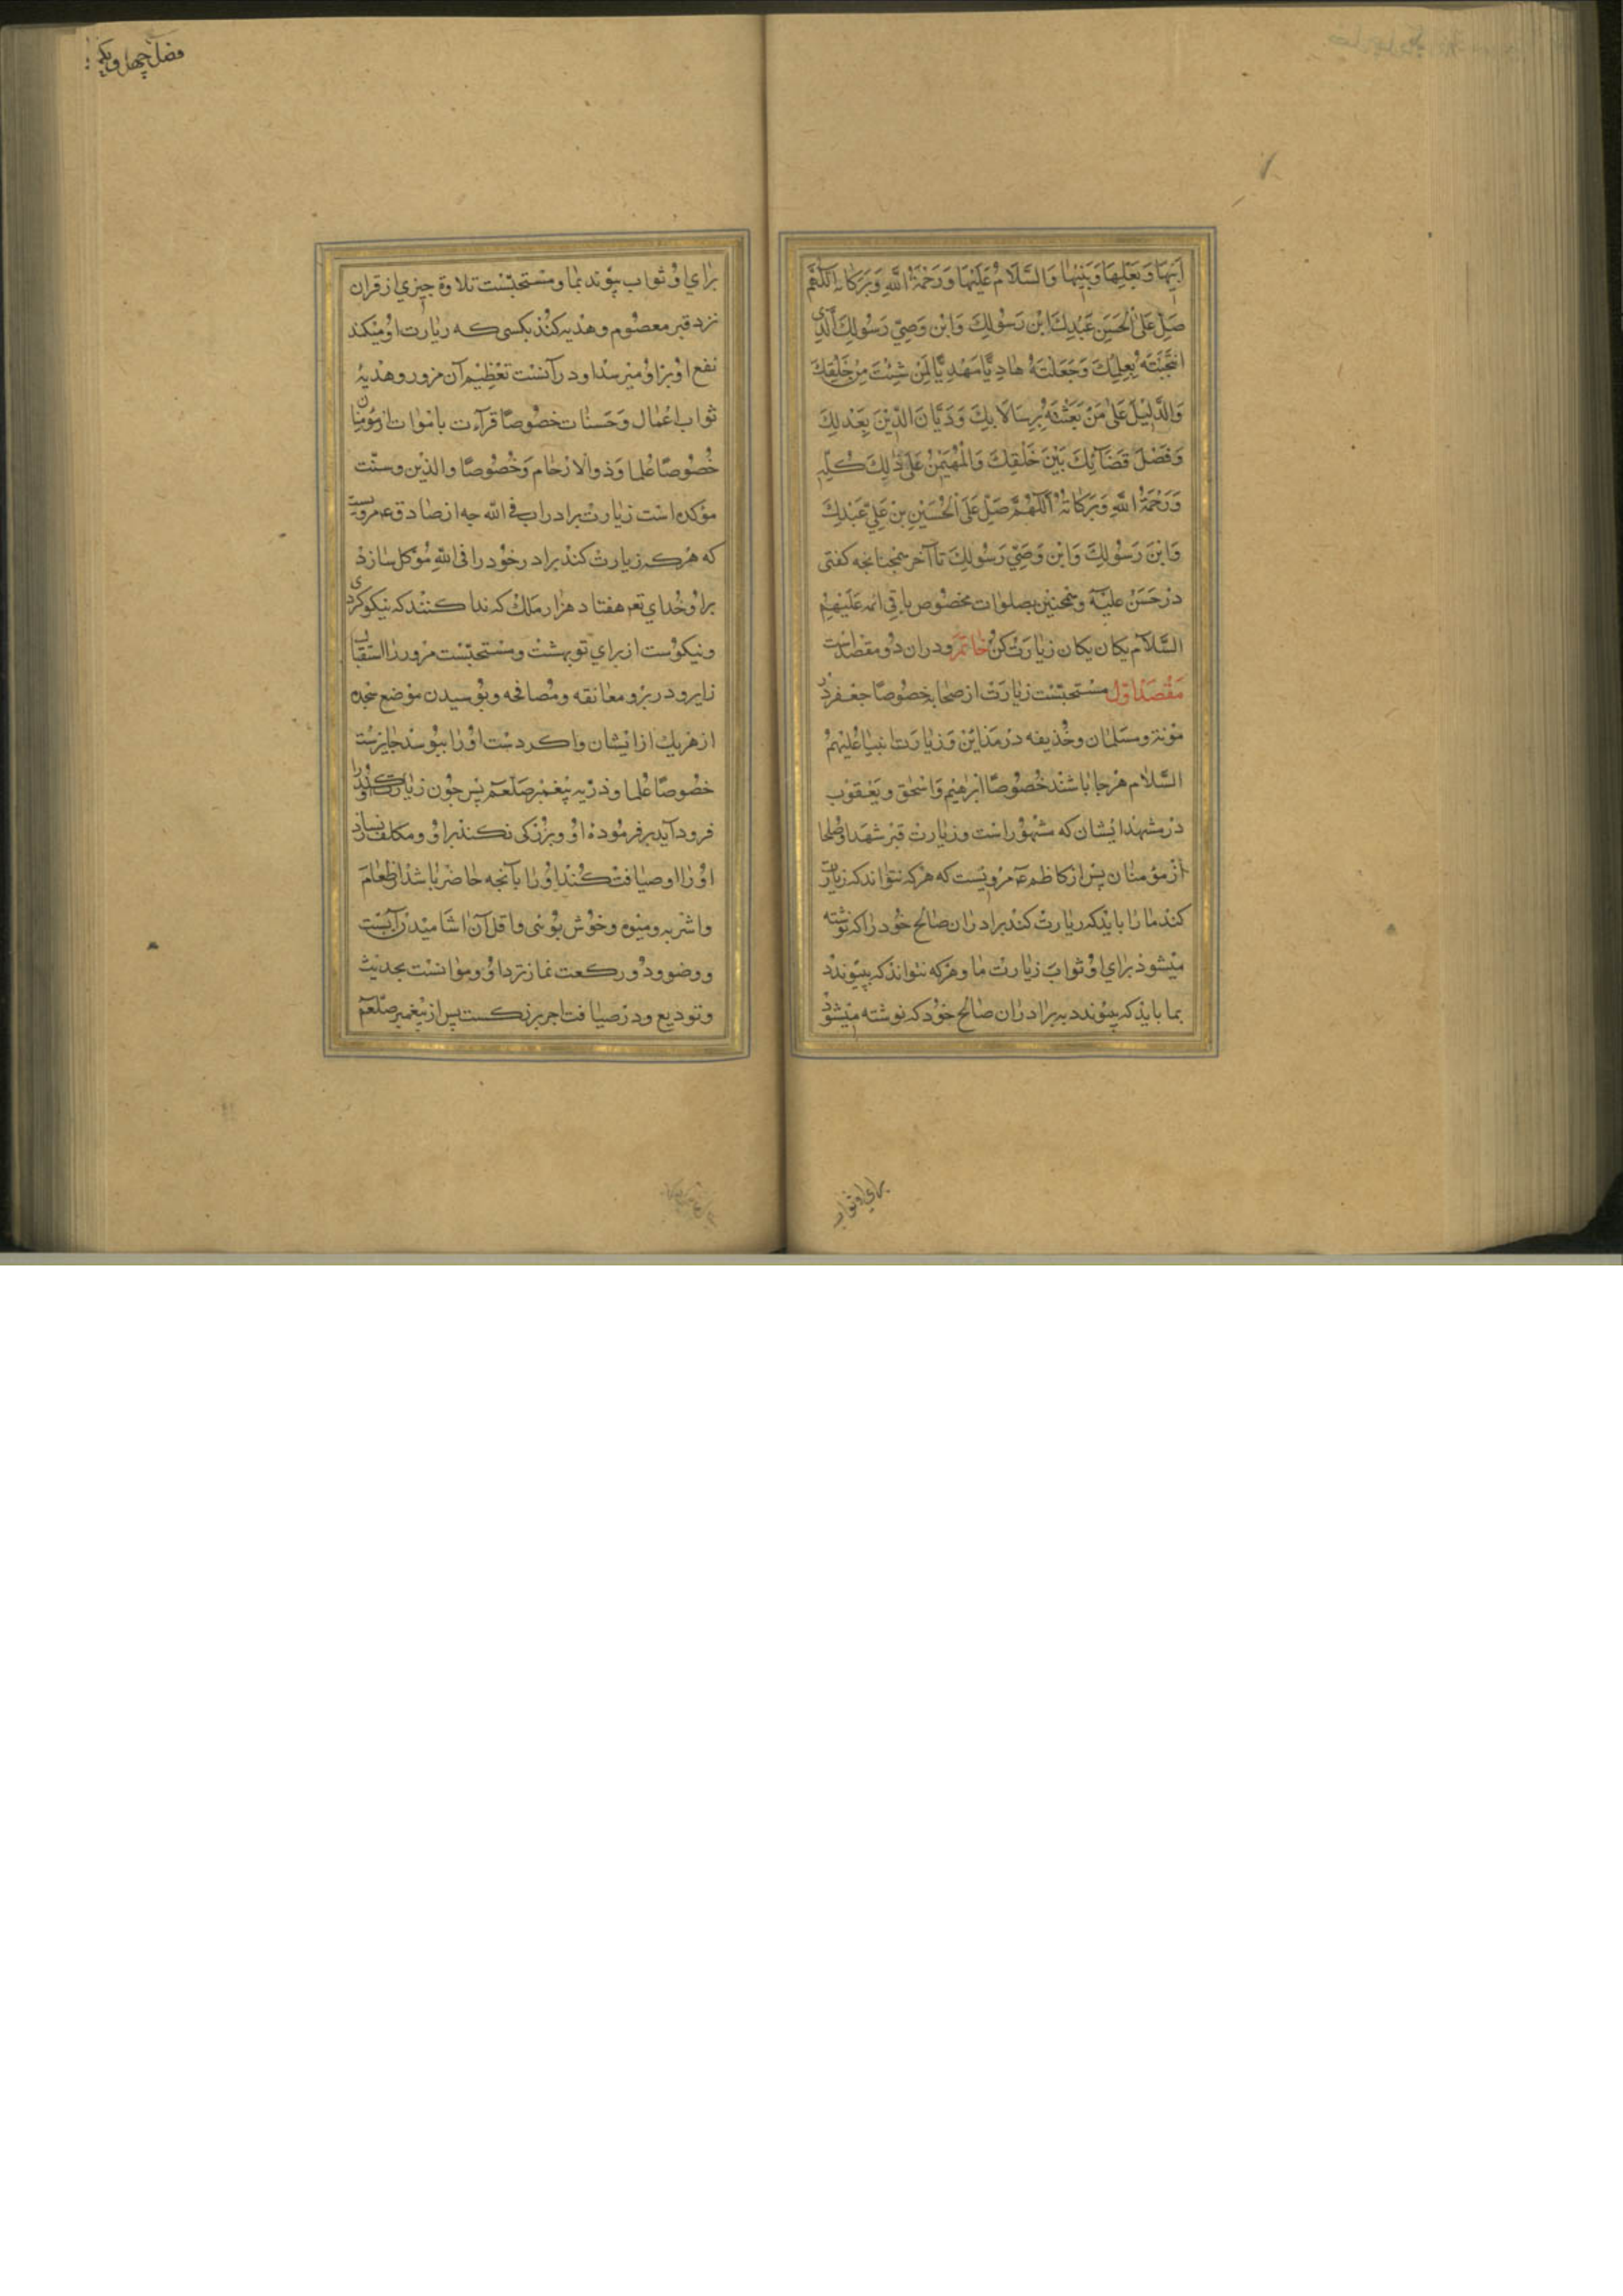 اَبِیهَا وَبَعْلِهَا وَبَنِیهَا وَالسَّلَامُ عَلَیْهَا وَرَحْمَةُ اللّهِ وَبَرَکَاتُهُ اَللّهُمَّ
صَلِّ عَلَی الْحَسَنِ عَبْدِكَ ابْنِ رَسُولِكَ وَابْنِ وَصِیِّ رَسُولِكَ الَّذِی
انْتَجَبْتَهُ بِعِلْمِكَ وَجَعَلْتَهُ هَادِیًّا مَهْدِیًّا لِمَنْ شِئْتَ مِنْ خَلْقِكَ
وَالدَّلِیْلَ عَلی مَنْ بَعَثْتَهُ بِرِسَالَاتِكَ وَدَیَّانَ الدِّیْنِ بِعَدْلِكَ
وَفَصْلَ قَضَآئِكَ بَیْنَ خَلْقِكَ وَالْمُهَیْمِنُ عَلی ذلِكَ کُلِّهِ
وَرَحْمَةُ اللّهِ وَبَرَکَاتُهُ اَللّهُمَّ صَلِّ عَلَی الْحُسَیْنِ بْنِ عَلِیٍّ عَبْدِكَ
وَابْنِ رَسُولِكَ وَابْنِ وَصِیِّ رَسُولِكَ تا آخر همچنانچه کفتی
در حَسَنْ علیه و همچنین بصلوات مخصوص باقی ائمه عَلَیْهِمُ
السَّلَام یکان یکان زیارت کن خاتمه ودران دو مقصد است
مَقْصَد اوّل مستحبّست زیارَت از صحابه خصُوصًا جعفر در
مؤته وسلمان وحُذیفه در مداین وزیارت انبیا عَلیْهِمُ
السَّلام هرجا باشند خُصُوصًا ابرهیم وَاسْحق ویَعْقوْب
در مشهد ایشان که مشهور است وزیارت قبر شهدا وصلحا
از مؤمنان پس از کاظم ع مرویست که هرکه نتواند که زیارت
کند ما را باید که زیارت کند برادران صالح خود را که نوشته
میشود برای او ثواب زیارت ما وهرکه نتواند که بپیوندد
بما باید که پیوندد به برادران صالح خود که نوشته میشود
برای او ثواب
فصل چهل ویکم
برای او ثواب پیوند بما ومستحبّست تلاوة چیزی از قران
نزد قبر معصوم وهدیه کند بکسی که زیارت او میکند
نفع او برا و میرسد او در آنست تعظیم آن مزور وهدیهٔ
ثواب اعمال وَحَسنات خصُوصًا قرآءت باموات از مؤمنان
خُصُوصًا عُلما وَذوالارْحام وَخُصُوصًا والدین وسنّت
مؤکده است زیارت برادران فی اللّه چه از صادق ع مرویست
که هرکه زیارت کند برادر خود را فی اللّهِ مُؤکل سازد
براو خُدای تع هفتاد هزار ملك که ندا کنند که نیکو کردی
ونیکوست از برای تو بهشت ومستحبّست مزور را استقبال
زایر ودر برو معانقه ومُصافحه وبُوسیدن موضع سجده
از هریك از ایشان واکر دست او را ببوسد جایزست
خصُوصًا عُلما وذرّیه پیْغمبر صَلّعم پس چون زیارت کند او را
فرود آید بر فرموده او وبزرکی نکند براو ومکلف نسازد
او را اوضیافت کند او را بآنچه حاضر باشد از طعام
واشربه ومیوه وخوش بوئی واقل آن اشامیدن آبست
ووضو ودو رکعت نماز نزد او وموانست بحدیث
وتودیع ودر ضیافت اجر بزرکست پس از پیغمبر صَلّعم